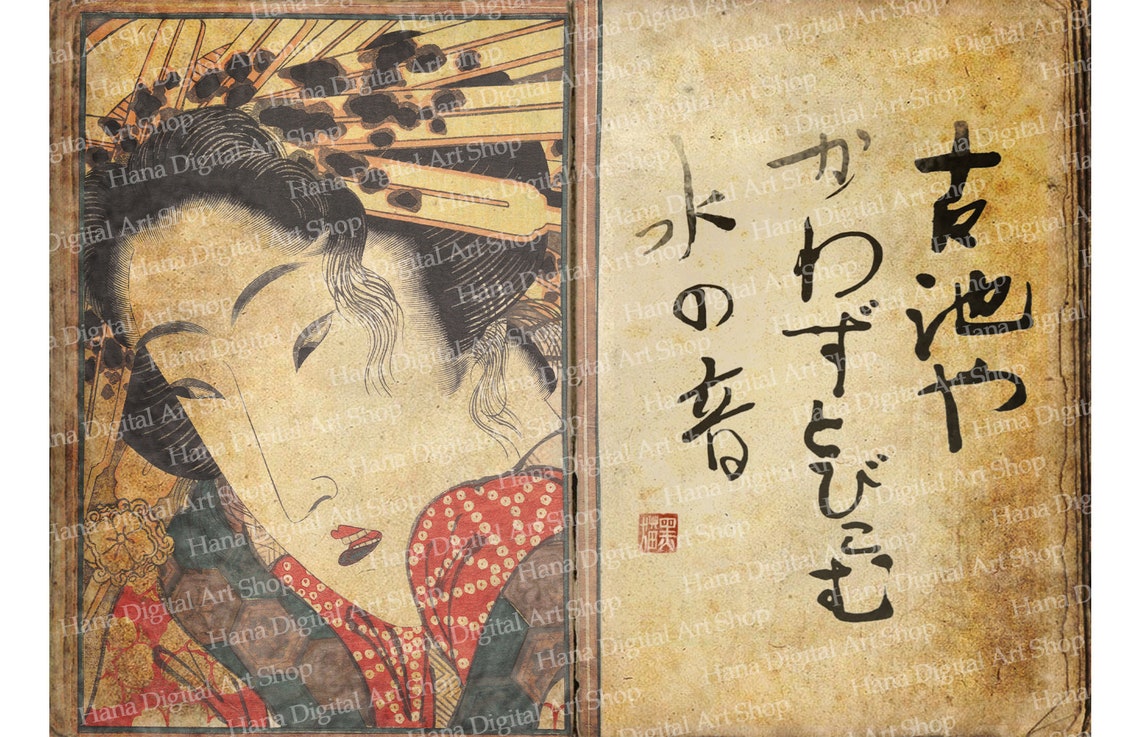 古池や
かわずとびこむ
水の音
Hana Digital Art Shop